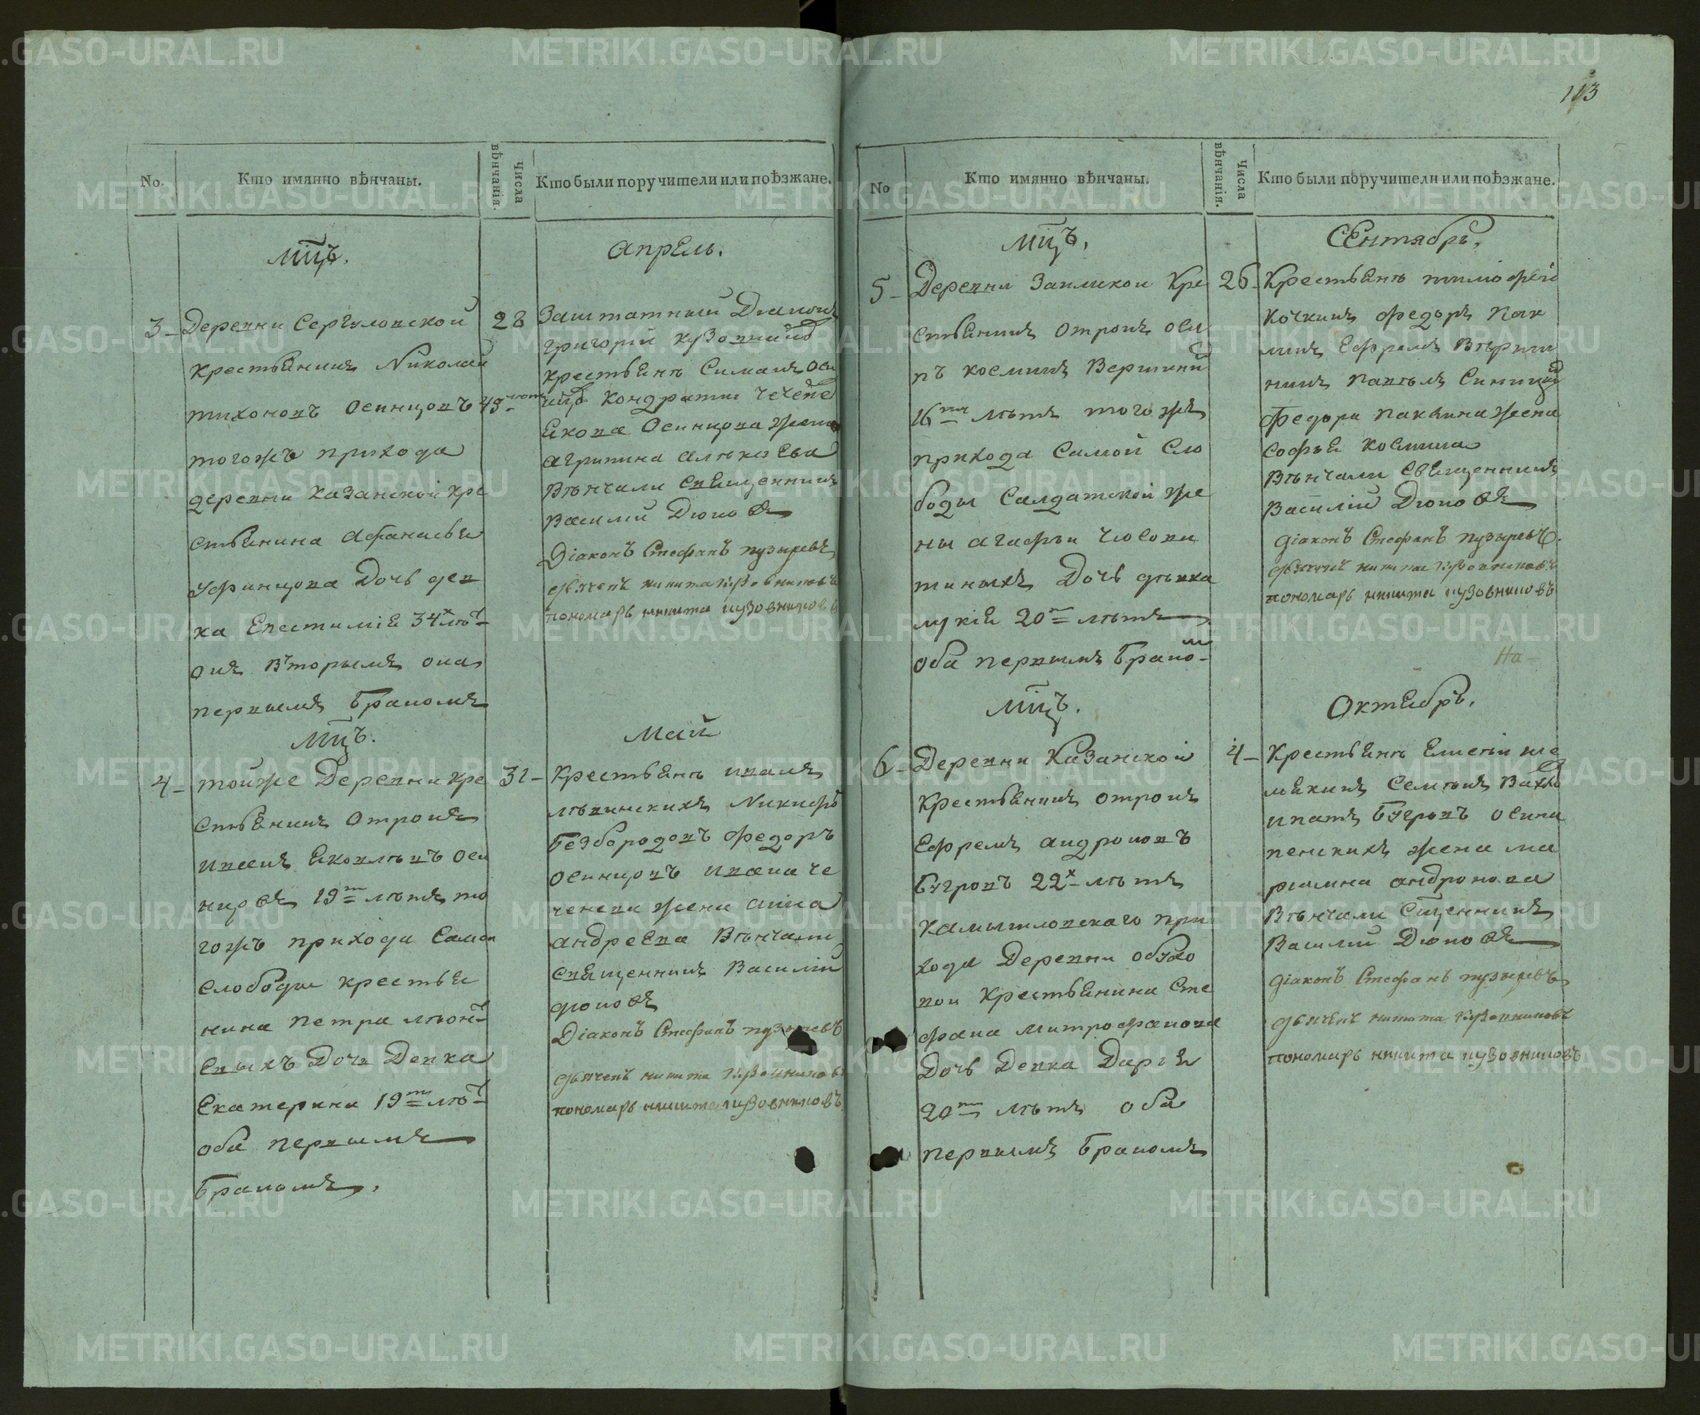 113
No.
Кто имянно вѣнчаны.
Числа вѣнчанія.
Кто были поручители или поѣзжане.
Мцъ.
Апрель.
3 - Деревни Сергуловской
крестьянинъ Николай
Тихоновъ Осинцовъ 43
тогожъ прихода
деревни Казанской кре
стьянина Афанасья
Уфинцова дочь дев
ка Епестимiя 34х лѣтъ
онъ вторымъ она
первымъ бракомъ
28
Заштатный Дьяконъ
Григорій Кузовников
крестьянъ Симанъ Оси
Кондратий
Якова Осинцова жена
Агрипина Алексѣева
Вѣнчали Священникъ
Василий Дюковъ
Діаконъ Стефанъ Пузыревъ
дьячекъ Никита Кузовниковъ
пономарь Никита Кузовниковъ
Мцъ.
Май
4 - той же Деревни кре
стьянинъ отрокъ
Иванъ Яковлевъ Оси
нцовъ 19ти лѣтъ то
гожъ прихода самой
слободы крестья
нина Петра
дочь девка
Екатерина 19ти лѣтъ
оба первымъ
бракомъ.
31 -
Крестьянъ Иванъ
Никифоръ
Безбородовъ Федоръ
Осинцовъ Ивана Че
ченева жена Анна
Андреева Вѣнчали
Священникъ Василій
Дюковъ
Діаконъ Стефанъ Пузыревъ
дьячекъ Никита Кузовниковъ
пономарь Никита Кузовниковъ
No
Кто имянно вѣнчаны.
Числа вѣнчанія.
Кто были поручители или поѣзжане.
Мцъ.
Сентябрь.
5 - Деревни Заимской Кре
стьянинъ отрокъ Оси
пъ Косминъ Вершинин
16ти лѣтъ тогожъ
прихода самой сло
боды салдатской же
ны Агафьи
дочь девка
20ти лѣтъ
оба первымъ бракомъ
26 -
Крестьянъ Тимофей
Кочкинъ Федоръ Пак
линъ Ефремъ Верши
нинъ Павелъ Синицын
Федора Паклина жена
Софья Космина
Вѣнчали Священникъ
Василій Дюковъ
Діаконъ Стефанъ Пузыревъ.
дьячекъ Никита Кузовниковъ
пономарь Никита Кузовниковъ
На -
Мцъ.
Октябрь.
6 - Деревни Казанской
крестьянинъ отрокъ
Ефремъ Андроновъ
Бугровъ 22х лѣтъ
Камышловскаго при
хода Деревни Обухо
вой крестьянина Сте
фана Митрофанова
дочь девка Дарья
20ти лѣтъ оба
первымъ бракомъ
4 -
Крестьянъ Елисей Ше
мякинъ Семенъ
Игнатъ Бугровъ Осипа
жена Ма
рианна Андронова
Вѣнчали Сщенникъ
Василій Дюковъ
Діаконъ Стефанъ Пузыревъ
дьячекъ Никита Кузовниковъ
пономарь Никита Кузовниковъ
METRIKI.GASO-URAL.RU